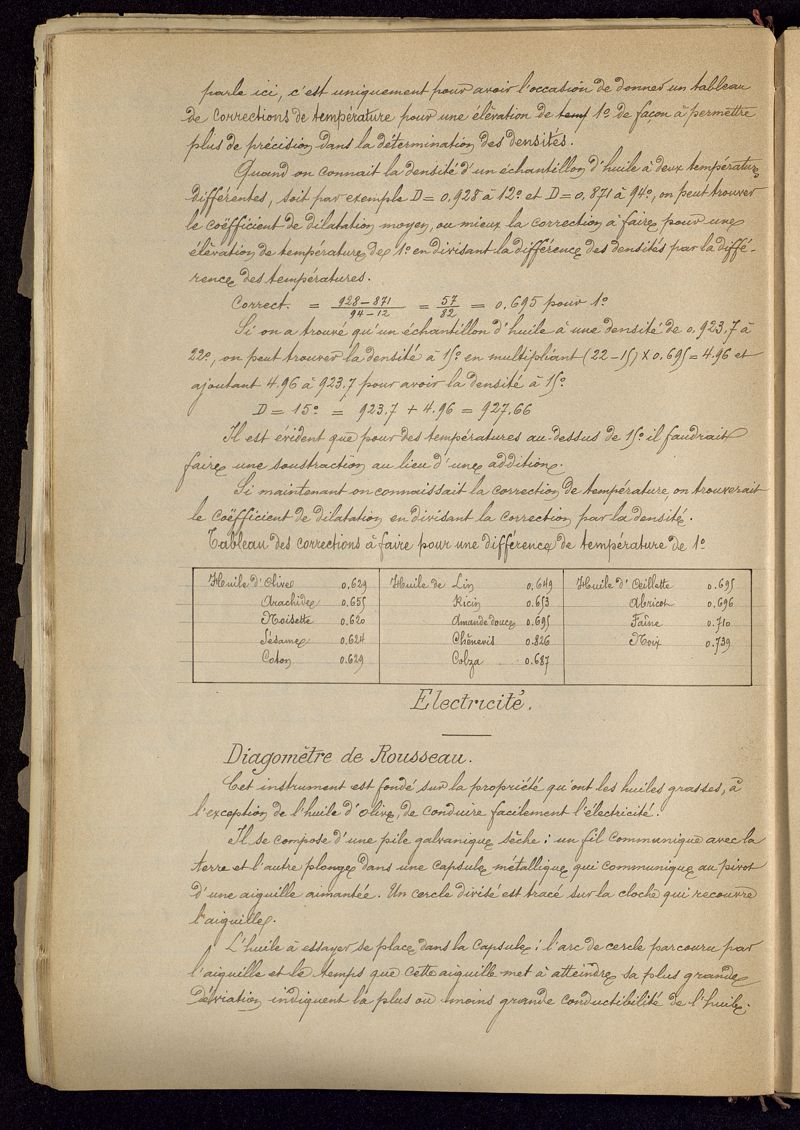 parle ici, c'est uniquement pour avoir l'occasion de donner un tableau
de corrections de température pour une élévation de temp 1º de façon à permettre
plus de précision dans la détermination des densités.
Quand on connait la densité d'un échantillon d'huile à deux températures
différentes, soit par exemple D = 0,928 à 12º et D = 0,871 à 94º, on peut trouver
le coëfficient de dilatation moyen, ou mieux la correction à faire pour une
élévation de température de 1º en divisant la différence des densités par la diffé-
rence des températures.
Correct. = 928-871 / 94-12 = 57/82 = 0.695 pour 1º
Si on a trouvé qu'un échantillon d'huile à une densité de 0,923.7 à
22º, on peut trouver la densité à 15º en multipliant (22-15) X 0.695 = 4.96 et
ajoutant 4.96 à 923.7 pour avoir la densité à 15º
D = 15º = 923.7 + 4.96 = 927.66
Il est évident que pour des températures au-dessus de 15º il faudrait
faire une soustraction au lieu d'une addition.
Si maintenant on connaissait la correction de température, on trouverait
le coëfficient de dilatation en divisant la correction par la densité.
Tableau des corrections à faire pour une différence de température de 1º
Huile d'Olive 0.629 Huile de Lin 0.649 Huile d'Oeillette 0.695
Arachide 0.655 Ricin 0.653 Abricot 0.696
Noisette 0.620 Amande douce 0.695 Faîne 0.710
Sésame 0.624 Chênevis 0.826 Noix 0.739
Coton 0.629 Colza 0.687
Electricité.
Diagomètre de Rousseau.
Cet instrument est fondé sur la propriété qu'ont les huiles grasses, à
l'exception de l'huile d'olive, de conduire facilement l'électricité.
Il se compose d'une pile galvanique sèche: un fil communique avec la
terre et l'autre plonge dans une capsule métallique qui communique au pivot
d'une aiguille aimantée. Un cercle divisé est tracé sur la cloche qui recouvre
l'aiguille.
L'huile à essayer se place dans la capsule; l'arc de cercle parcouru par
l'aiguille et le temps que cette aiguille met à atteindre sa plus grande
déviation indiquent la plus ou moins grande conductibilité de l'huile.